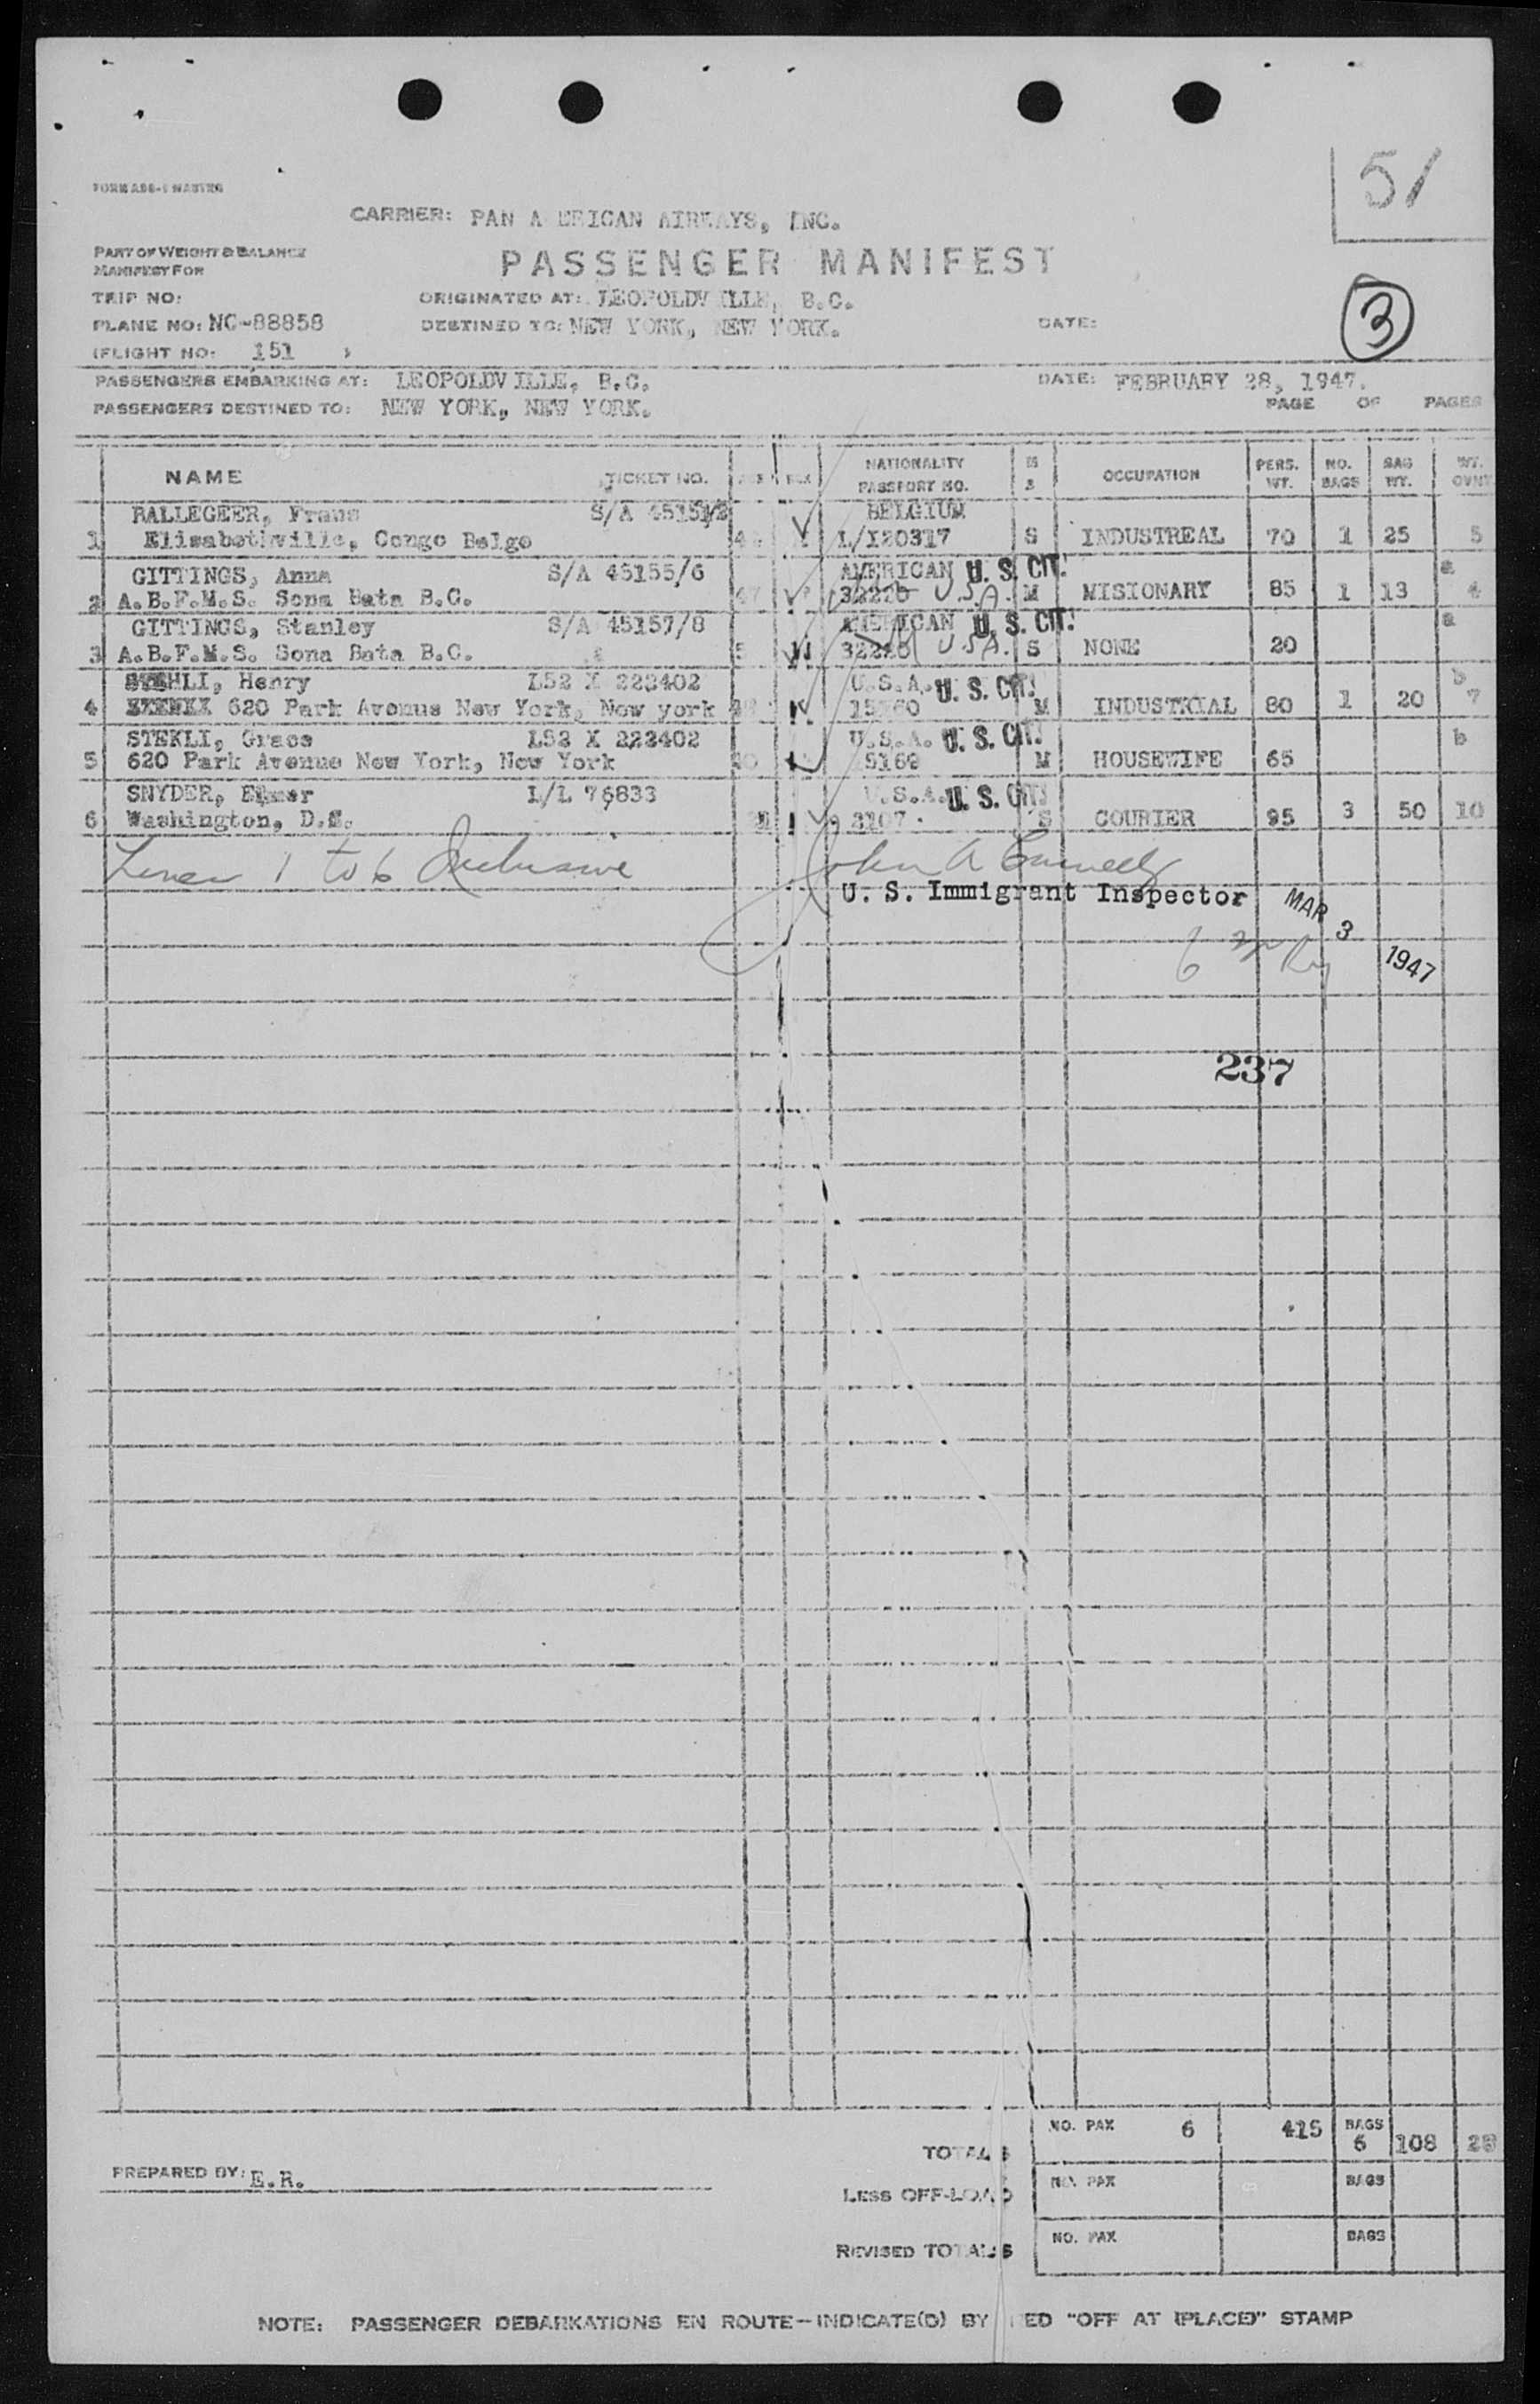 51
FORM
CARRIER: PAN A ERICAN AIRWAYS, INC.
PART OF WEIGHT & BALANCE
MANIFEST FOR
PASSENGER MANIFEST
3
TRIP NO:
ORIGINATED AT: LEOPOLDVILLE, B.C.
PLANE NO: NC-88858
DESTINED TO: NEW YORK, NEW YORK.
DATE:
(FLIGHT NO: 151 )
PASSENGERS EMBARKING AT: LEOPOLDVILLE, B.C.
DATE: FEBRUARY 28, 1947.
PASSENGERS DESTINED TO: NEW YORK, NEW YORK.
PAGE OF PAGES
NAME TICKET NO. NATIONALITY PASSPORT NO. M S OCCUPATION PERS. WT. NO. BAGS BAG WT. WT.
BALLEGEER, Frans S/A BELGIUM
1 Elisabethville, Congo Belge L/120317 S INDUSTREAL 70 1 25 5
GITTINGS, Anna S/A 45155/6 AMERICAN U. S. CIT. a
2 A.B.F.M.S. Sona Bata B.C. U.S.A. M MISIONARY 85 1 13 4
GITTINGS, Stanley S/A 45157/8 AMERICAN U. S. CIT. a
3 A.B.F.M.S. Sona Bata B.C. U.S.A. S NONE 20
STEHLI, Henry L52 X 222402 U.S.A. U. S. CIT. b
4 620 Park Avenue New York, New york M INDUSTRIAL 80 1 20 7
STEKLI, Grace L52 X 222402 U.S.A. U. S. CIT. b
5 620 Park Avenue New York, New York M HOUSEWIFE 65
SNYDER, Elmer L/L 76833 U.S.A. U. S. CIT.
6 Washington, D.C. 2107 S COURIER 95 3 50 10
Lines 1 to 6 Inclusive
John A
U. S. Immigrant Inspector
MAR 3 1947
237
TOTALS NO. PAX 6 415 BAGS 6 108 28
PREPARED BY: E.R.
LESS OFF-LOAD NO. PAX BAGS
REVISED TOTALS NO. PAX BAGS
NOTE: PASSENGER DEBARKATIONS EN ROUTE-INDICATE(D) BY ED "OFF AT (PLACE)" STAMP